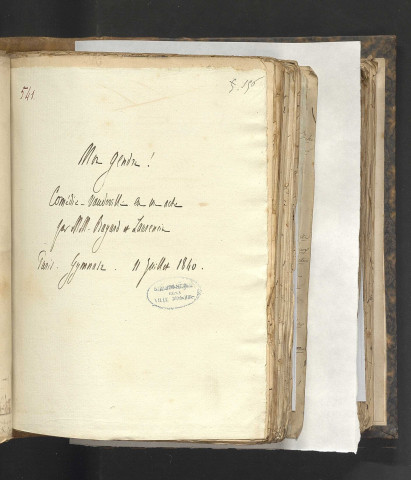 541.
Mon gendre!
Comédie-Vaudeville en un acte
par MM. Bayard et Laurencin
Paris. Gymnase. 11 Juillet 1840.